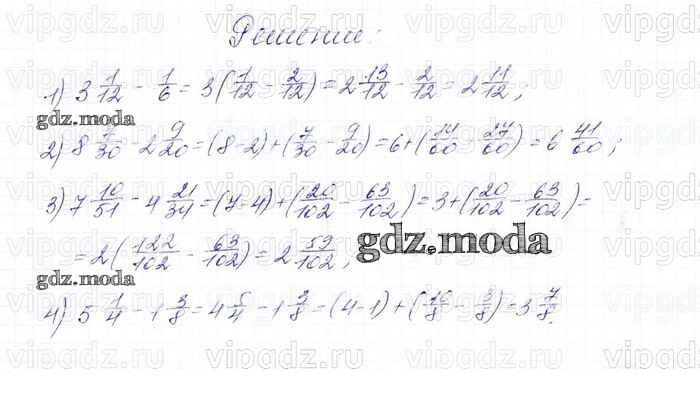 Решение:
1) 3 1/12 - 1/6 = 3(1/12 - 2/12) = 2 13/12 - 2/12 = 2 11/12;
gdz.moda
2) 8 7/30 - 2 9/20 = (8-2)+(7/30 - 9/20) = 6+(14/60 - 27/60) = 6 41/60;
3) 7 10/51 - 4 21/34 = (7-4)+(20/102 - 63/102) = 3+(20/102 - 63/102) =
= 2(122/102 - 63/102) = 2 59/102;
gdz.moda
gdz.moda
4) 5 1/4 - 1 3/8 = 4 5/4 - 1 3/8 = (4-1)+(10/8 - 3/8) = 3 7/8.
vipgdz.ru